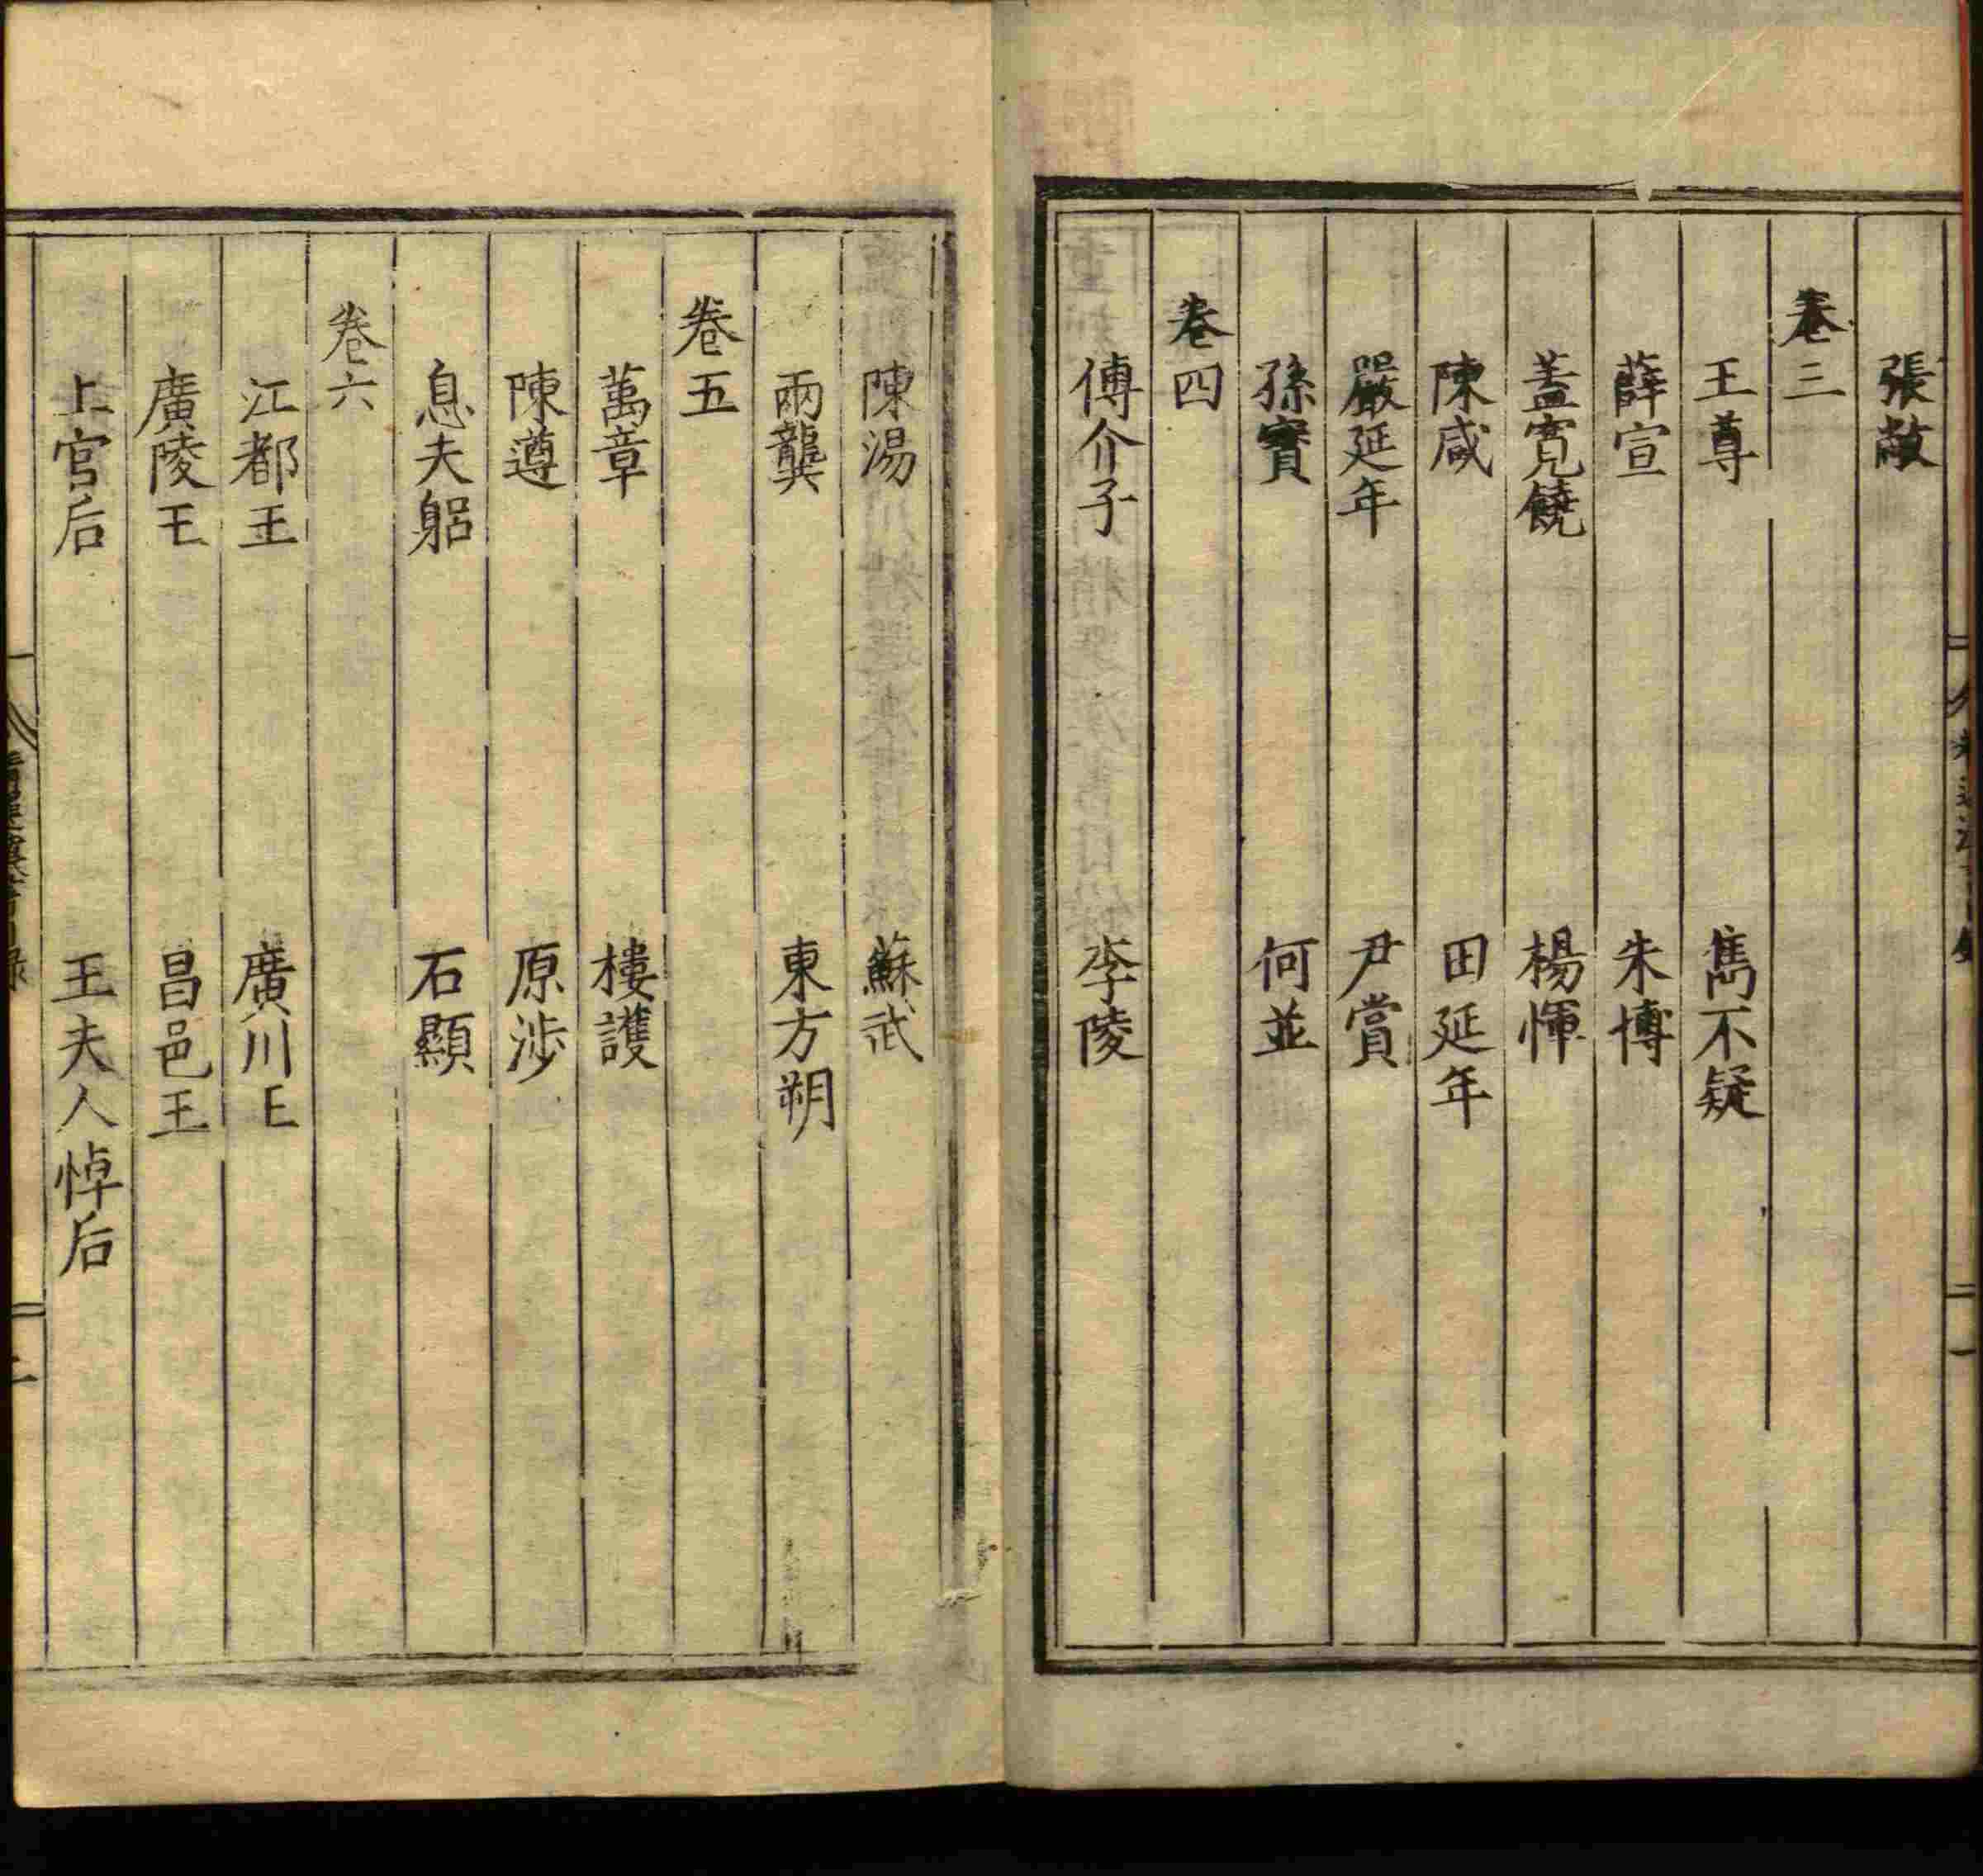 張敞
卷三
王尊 雋不疑
薛宣 朱博
蓋寬饒 楊惲
陳咸 田延年
嚴延年 尹賞
孫寳 何並
卷四
傅介子 李陵
陳湯 蘇武
兩龔 東方朔
卷五
萬章 樓護
陳遵 原涉
息夫躬 石顯
卷六
江都王 廣川王
廣陵王 昌邑王
上官后 王夫人悼后